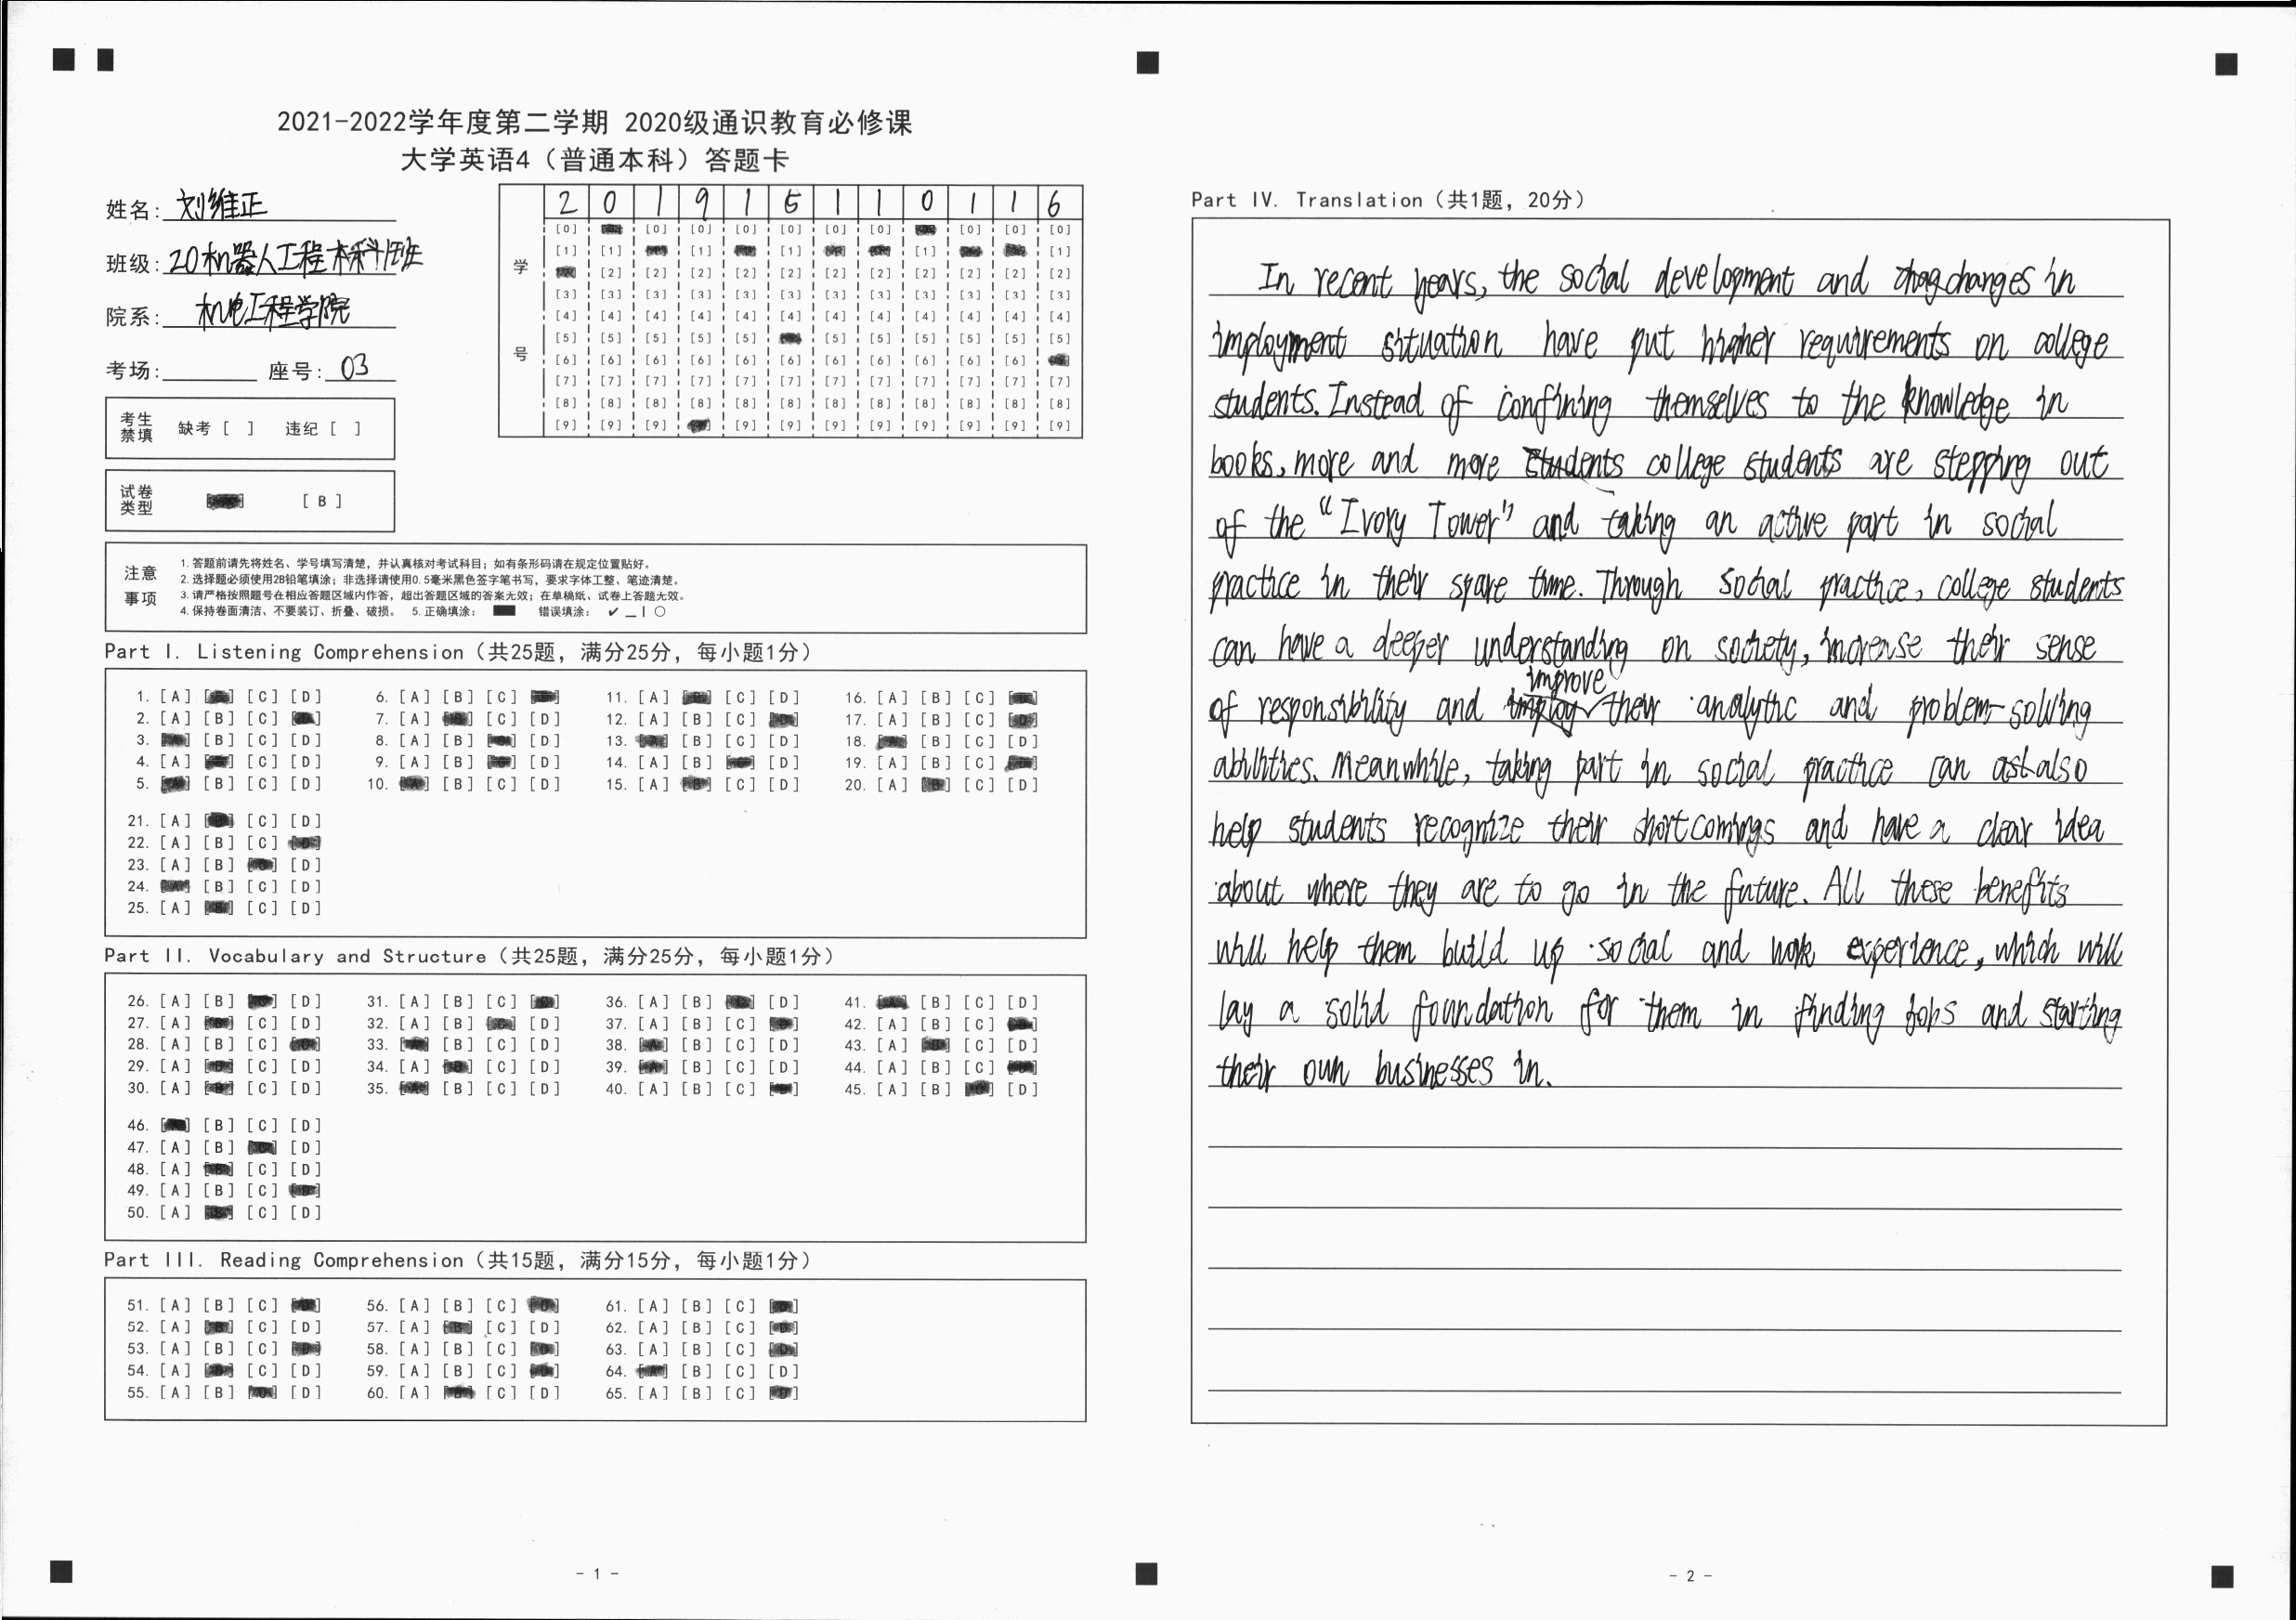 2021-2022学年度第二学期 2020级通识教育必修课
大学英语4（普通本科）答题卡
姓名: 刘维正
班级: 20机器人工程本科1班
院系: 机电工程学院
考场: 座号: 03
考生禁填 缺考 [ ] 违纪 [ ]
试卷类型 [ B ]
学号
2 0 1 9 1 5 1 1 0 1 1 6
[0] [0] [0] [0] [0] [0] [0] [0] [0] [0]
[1] [1] [1] [1] [1]
[2] [2] [2] [2] [2] [2] [2] [2] [2] [2] [2]
[3] [3] [3] [3] [3] [3] [3] [3] [3] [3] [3] [3]
[4] [4] [4] [4] [4] [4] [4] [4] [4] [4] [4] [4]
[5] [5] [5] [5] [5] [5] [5] [5] [5] [5] [5]
[6] [6] [6] [6] [6] [6] [6] [6] [6] [6] [6]
[7] [7] [7] [7] [7] [7] [7] [7] [7] [7] [7] [7]
[8] [8] [8] [8] [8] [8] [8] [8] [8] [8] [8] [8]
[9] [9] [9] [9] [9] [9] [9] [9] [9] [9] [9]
注意事项
1.答题前请先将姓名、学号填写清楚，并认真核对考试科目；如有条形码请在规定位置贴好。
2.选择题必须使用2B铅笔填涂；非选择请使用0.5毫米黑色签字笔书写，要求字体工整、笔迹清楚。
3.请严格按照题号在相应答题区域内作答，超出答题区域的答案无效；在草稿纸、试卷上答题无效。
4.保持卷面清洁、不要装订、折叠、破损。 5.正确填涂： 错误填涂：
Part I. Listening Comprehension（共25题，满分25分，每小题1分）
1. [A] [C] [D] 6. [A] [B] [C] 11. [A] [C] [D] 16. [A] [B] [C]
2. [A] [B] [C] 7. [A] [C] [D] 12. [A] [B] [C] 17. [A] [B] [C]
3. [B] [C] [D] 8. [A] [B] [D] 13. [B] [C] [D] 18. [B] [C] [D]
4. [A] [C] [D] 9. [A] [B] [D] 14. [A] [B] [D] 19. [A] [B] [C]
5. [B] [C] [D] 10. [B] [C] [D] 15. [A] [C] [D] 20. [A] [C] [D]
21. [A] [C] [D]
22. [A] [B] [C]
23. [A] [B] [D]
24. [B] [C] [D]
25. [A] [C] [D]
Part II. Vocabulary and Structure（共25题，满分25分，每小题1分）
26. [A] [B] [D] 31. [A] [B] [C] 36. [A] [B] [D] 41. [B] [C] [D]
27. [A] [C] [D] 32. [A] [B] [D] 37. [A] [B] [C] 42. [A] [B] [C]
28. [A] [B] [C] 33. [B] [C] [D] 38. [B] [C] [D] 43. [A] [C] [D]
29. [A] [C] [D] 34. [A] [C] [D] 39. [B] [C] [D] 44. [A] [B] [C]
30. [A] [C] [D] 35. [B] [C] [D] 40. [A] [B] [C] 45. [A] [B] [D]
46. [B] [C] [D]
47. [A] [B] [D]
48. [A] [C] [D]
49. [A] [B] [C]
50. [A] [C] [D]
Part III. Reading Comprehension（共15题，满分15分，每小题1分）
51. [A] [B] [C] 56. [A] [B] [C] 61. [A] [B] [C]
52. [A] [C] [D] 57. [A] [C] [D] 62. [A] [B] [C]
53. [A] [B] [C] 58. [A] [B] [C] 63. [A] [B] [C]
54. [A] [C] [D] 59. [A] [B] [C] 64. [B] [C] [D]
55. [A] [B] [D] 60. [A] [C] [D] 65. [A] [B] [C]
- 1 -
Part IV. Translation（共1题，20分）
In recent years, the social development and changes in
imployment situation have put higher requirements on college
students. Instead of confining themselves to the knowledge in
books, more and more students college students are stepping out
of the "Ivory Tower" and taking an active part in social
practice in their spare time. Through social practice, college students
can have a deeper understanding on society, increase their sense
of responsibility and improve their analytic and problem-solving
abilities. Meanwhile, taking part in social practice can also
help students recognize their shortcomings and have a clear idea
about where they are to go in the future. All these benefits
will help them build up social and work experience, which will
lay a solid foundation for them in finding jobs and starting
their own businesses in.
- 2 -